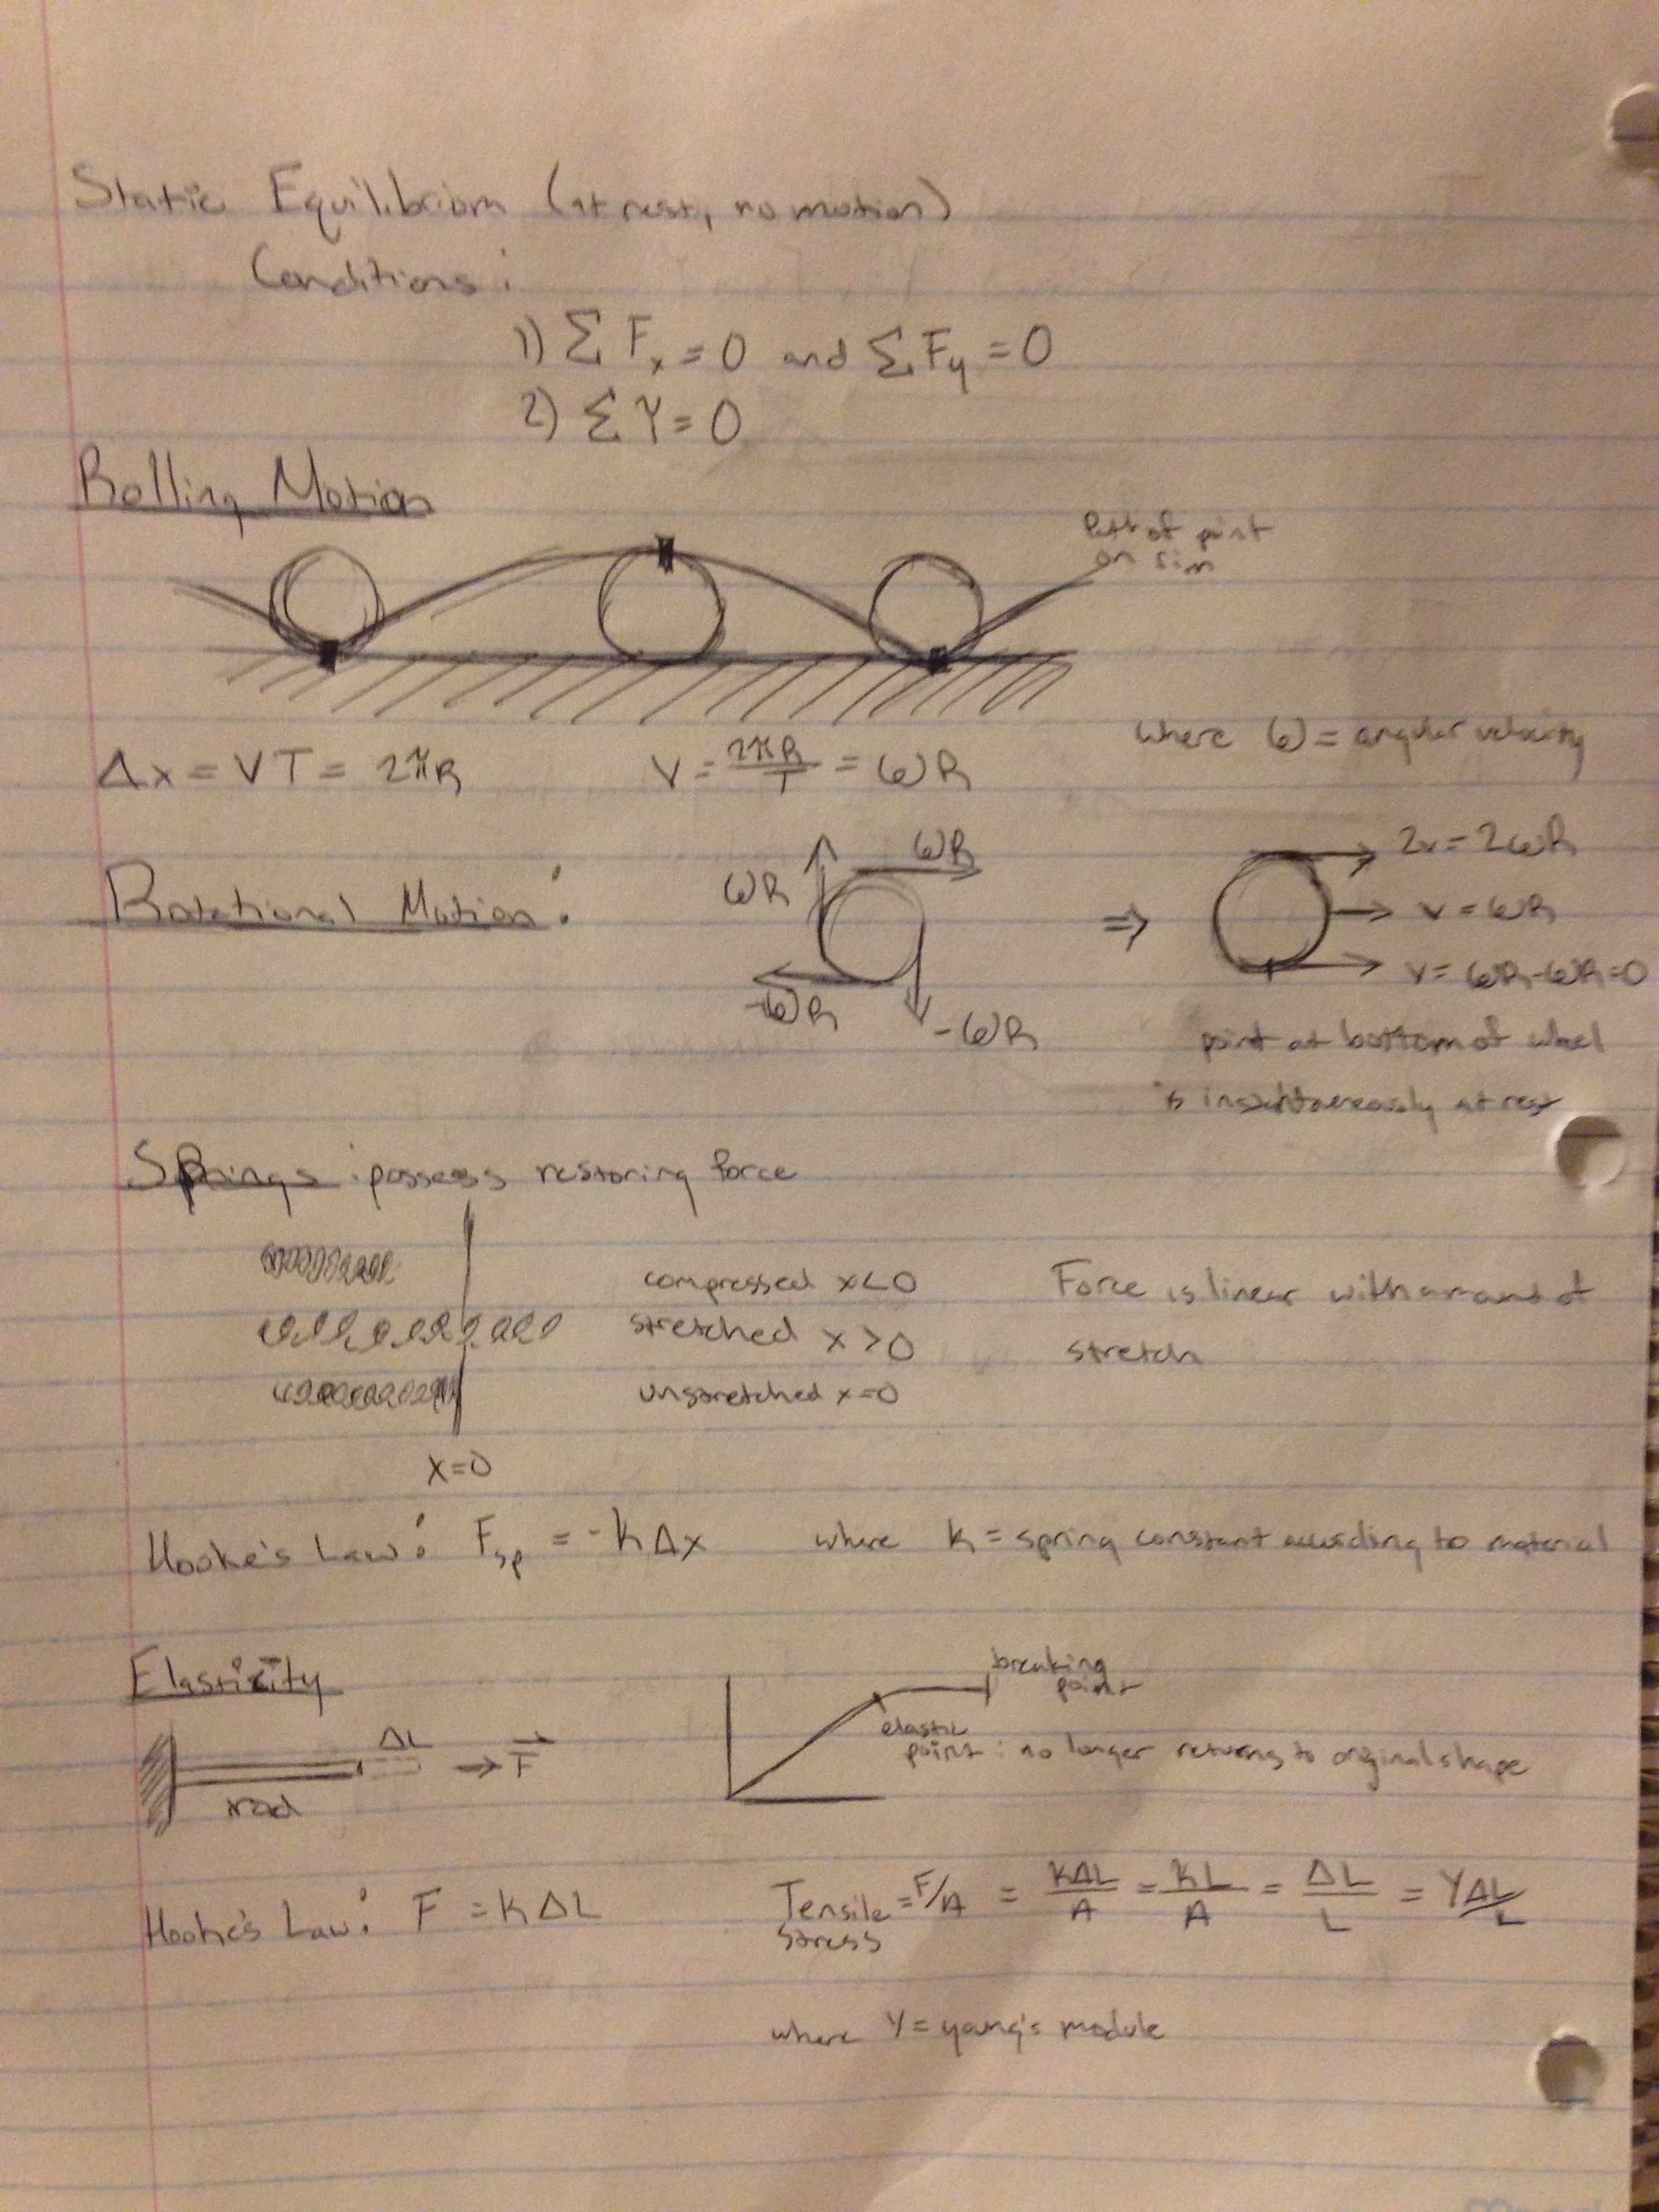 Static Equilibrium (at rest, no motion)
Conditions:
1) Σ Fx = 0 and Σ Fy = 0
2) Σ τ = 0
Rolling Motion
path of point
on rim
Δx = VT = 2πR
V = 2πR/T = ωR
where ω = angular velocity
Rotational Motion:
ωR
ωR
-ωR
-ωR
⇒
2v = 2ωR
v = ωR
v = ωR-ωR=0
point at bottom of wheel
is instantaneously at rest
Springs: possess restoring force
compressed x<0
stretched x>0
unstretched x=0
x=0
Force is linear with amount of
stretch
Hooke's Law: Fsp = -kΔx where k = spring constant according to material
Elasticity
ΔL
→ F
rod
breaking
point
elastic
point: no longer returns to original shape
Hooke's Law: F = kΔL
Tensile = F/A = KΔL/A = KL/A = ΔL/L = YΔL/L
stress
where Y = young's module